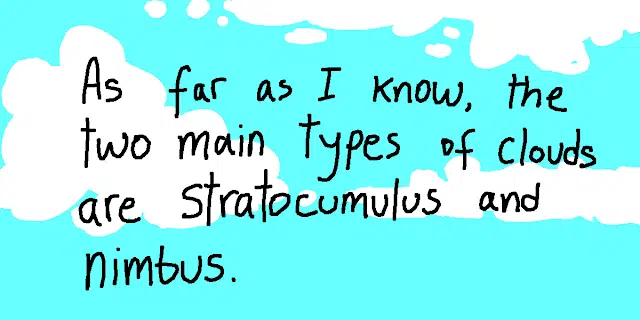 As far as I know, the
two main types of clouds
are stratocumulus and
nimbus.